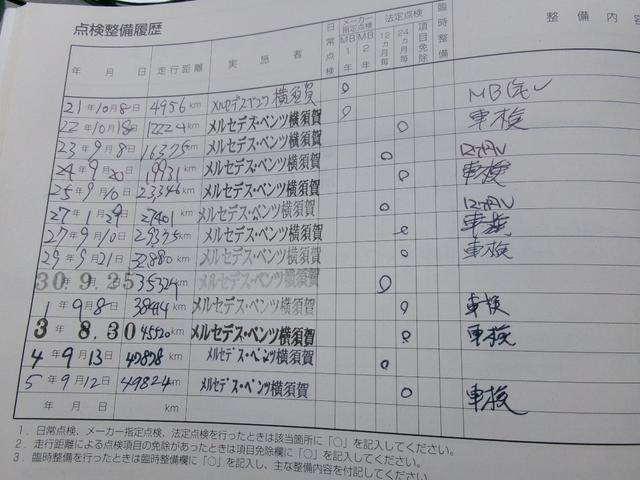 点検整備履歴
年 月 日 走行距離 実施者 日常点検 メーカー指定点検 MB1年 MB2年 法定点検 12ヵ月毎 24ヵ月毎 項目免除 臨時整備 整備内容
21年10月8日 4956km メルセデスベンツ横須賀 ○
22年10月18日 12224km メルセデス・ベンツ横須賀 ○ 車検
23年9月8日 16375km メルセデス・ベンツ横須賀 ○
24年9月20日 19931km メルセデス・ベンツ横須賀 ○ 車検
25年9月10日 23346km メルセデス・ベンツ横須賀 ○
27年1月29日 27401km メルセデス・ベンツ横須賀 ○ 車検
27年9月10日 29375km メルセデス・ベンツ横須賀 ○ 車検
29年9月21日 32880km メルセデス・ベンツ横須賀
30年9.25日 km メルセデス・ベンツ横須賀 ○
1年9月8日 km メルセデス・ベンツ横須賀 ○ 車検
3年8.30 45520km メルセデス・ベンツ横須賀 ○ 車検
4年9月13日 47878km メルセデス・ベンツ横須賀 ○
5年9月12日 49824km メルセデス・ベンツ横須賀 ○ 車検
年 月 日 km
1．日常点検、メーカー指定点検、法定点検を行ったときは該当箇所に「○」を記入してください。
2．走行距離による点検項目の免除があったときは項目免除欄に「○」を記入してください。
3．臨時整備を行ったときは臨時整備欄に「○」を記入し、主な整備内容を付記してください。